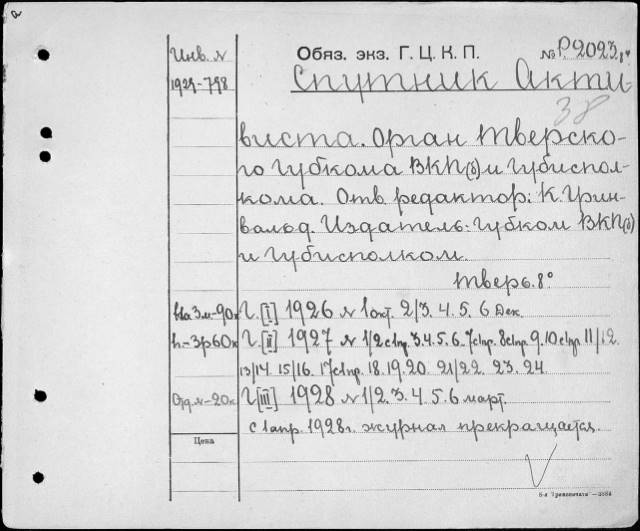 Инв. N
1929-798
Обяз. экз. Г. Ц. К. П.
№ Р.2023
Спутник Акти-
38
виста. Орган Тверско-
го Губкома ВКП(б) и Губиспол-
кома. Отв. редактор: К. Грин-
вальд. Издатель: Губком ВКП(б)
и Губисполком.
Тверь. 8°
на 3м-90к Г. [I] 1926 N 1 окт. 2/3. 4. 5. 6 Дек.
п-3р60к Г. [II] 1927 N 1/2 с 1 пр. 3. 4. 5. 6. 7 с 1 пр. 8 с 1 пр. 9. 10 с 1 пр. 11/12.
13/14. 15/16. 17 с 1 пр. 18. 19. 20. 21/22. 23. 24.
Отд. N-20к Г. [III] 1928 N 1/2. 3. 4. 5. 6 март.
с 1 апр. 1928 г. журнал прекращается.
Цена